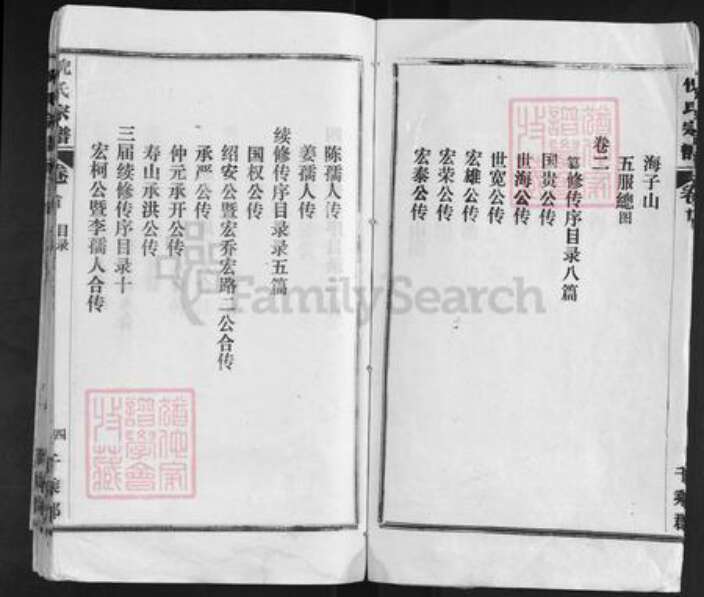 海子山
五服總图
卷二
篡修传序目录八篇
国贵公传
世海公传
世宽公传
宏雄公传
宏荣公传
宏泰公传
陈孺人传
姜孺人传
续修传序目录录五篇
国权公传
绍安公暨宏乔宏路二公合传
承严公传
仲元承开公传
寿山承洪公传
三届续修传序目录十
宏柯公暨李孺人合传
倪氏宗谱
卷首
目录
四
千乘郡
倪氏宗谱
卷首
千乘郡
FamilySearch